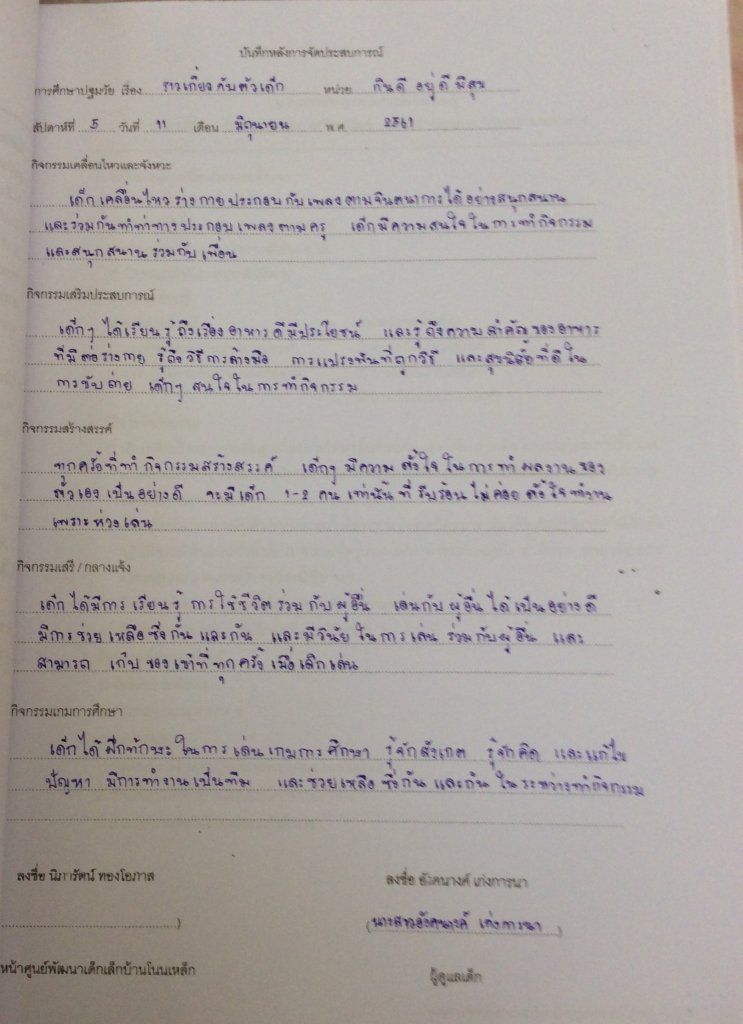 บันทึกหลังการจัดประสบการณ์
การศึกษาปฐมวัย เรื่อง ราวเกี่ยวกับตัวเด็ก หน่วย กินดี อยู่ดี มีสุข
สัปดาห์ที่ 5 วันที่ 11 เดือน มิถุนายน พ.ศ. 2561
กิจกรรมเคลื่อนไหวและจังหวะ
เด็กเคลื่อนไหวร่างกายประกอบกับเพลงตามจินตนาการได้อย่างสนุกสนาน
และร่วมกันทำท่าทางประกอบเพลงตามครู เด็กมีความสนใจในการทำกิจกรรม
และสนุกสนานร่วมกับเพื่อน
กิจกรรมเสริมประสบการณ์
เด็กๆ ได้เรียนรู้ถึงเรื่องอาหารดีมีประโยชน์ และรู้ถึงความสำคัญของอาหาร
ที่มีต่อร่างกาย รู้ถึงวิธีการล้างมือ การแปรงฟันที่ถูกวิธี และสุขนิสัยที่ดีใน
การขับถ่าย เด็กๆ สนใจในการทำกิจกรรม
กิจกรรมสร้างสรรค์
ทุกครั้งที่ทำกิจกรรมสร้างสรรค์ เด็กๆ มีความตั้งใจในการทำผลงานของ
ตัวเองเป็นอย่างดี จะมีเด็ก 1-2 คนเท่านั้นที่รีบร้อนไม่ค่อยตั้งใจทำงาน
เพราะห่วงเล่น
กิจกรรมเสรี / กลางแจ้ง
เด็กได้มีการเรียนรู้การใช้ชีวิตร่วมกับผู้อื่น เล่นกับผู้อื่นได้เป็นอย่างดี
มีการช่วยเหลือซึ่งกันและกัน และมีวินัยในการเล่นร่วมกับผู้อื่น และ
สามารถเก็บของเข้าที่ทุกครั้งเมื่อเลิกเล่น
กิจกรรมเกมการศึกษา
เด็กได้ฝึกทักษะในการเล่นเกมการศึกษา รู้จักสังเกต รู้จักคิด และแก้ไข
ปัญหา มีการทำงานเป็นทีม และช่วยเหลือซึ่งกันและกันในระหว่างทำกิจกรรม
ลงชื่อ นิภารัตน์ ทองโอภาส
ลงชื่อ อังคนางค์ เก่งการนา
(นางสาวอังคนางค์ เก่งการนา)
หน้าศูนย์พัฒนาเด็กเล็กบ้านโนนเหล็ก
ผู้ดูแลเด็ก